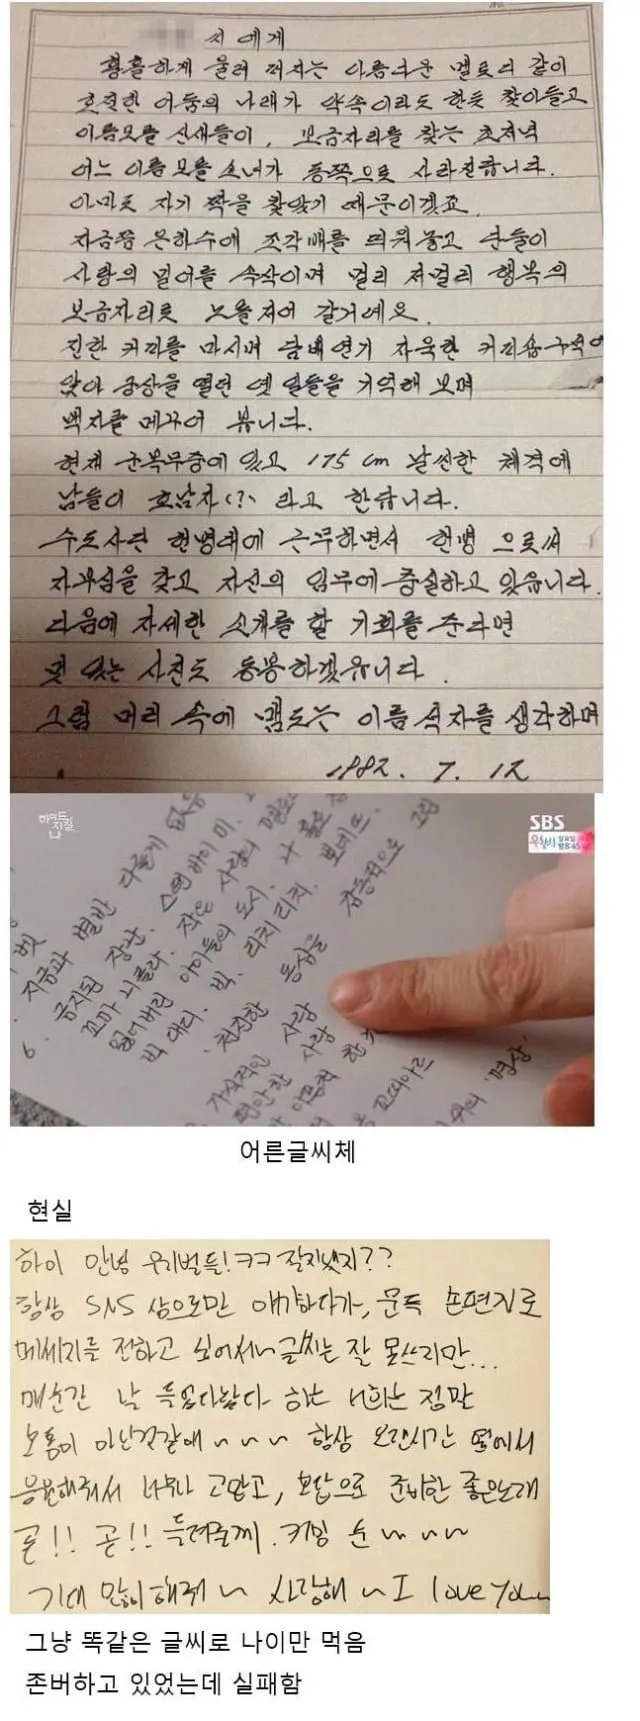 씨에게
황홀하게 울려 퍼지는 아름다운 멜로디 같이
호젓한 어둠의 나래가 약속이라도 한듯 찾아들고
이름모를 산새들이, 보금자리를 찾는 초저녁
어느 이름모를 소녀가 동쪽으로 사라진답니다.
아마도 자기 짝을 찾았기 때문이겠죠.
지금쯤 은하수에 조각배를 띄워놓고 단둘이
사랑의 밀어를 속삭이며 멀리 저멀리 행복의
보금자리로 노를저어 갈거예요.
진한 커피를 마시며 담배연기 자욱한 커피숍구석에
앉아 궁상을 떨던 옛 일들을 기억해 보며
백지를 메꾸어 봅니다.
현재 군복무중에 있고 175 cm 날씬한 체격에
남들이 호남자(?) 라고 한답니다.
수도사단 헌병대에 근무하면서 헌병 으로써
자부심을 갖고 자신의 임무에 충실하고 있읍니다.
다음에 자세한 소개를 할 기회를 준다면
멋 있는 사진도 동봉하겠읍니다.
그럼 머리 속에 맴도는 이름 석자를 생각하며
1982. 7. 12
하이드 지킬, 나
SBS
지금과 별반 다를게 없
6. 금지된 장난. 스탠바이 미.
꼬마 니콜라. 작은 사랑의 멜로
잃어버린 아이들의 도시. 나 홀로
빅 대디. 빅. 리치리치. 포네트.
천진한 동심을 감동적으로 그림
가식적인 사람
편안한 사람
꼬띠아르
위의 '명상'
어른글씨체
현실
하이 안녕 우리벌들!ㅋㅋ 잘지냈지??
항상 SNS 상으로만 얘기하다가, 문득 손편지로
메세지를 전하고 싶어서~ 글씨는 잘 못쓰지만...
매순간 날 들었다놨다 하는 너희는 정말
보통이 아닌것같애 ~ ~ ~ 항상 오랜시간 옆에서
응원해줘서 너무나 고맙고, 보답으로 준비한 좋은노래
곧!! 곧!! 들려줄께. 커밍 순 ~ ~ ~
기대 많이해줘 ~ 사랑해 ~ I love You~
그냥 똑같은 글씨로 나이만 먹음
존버하고 있었는데 실패함